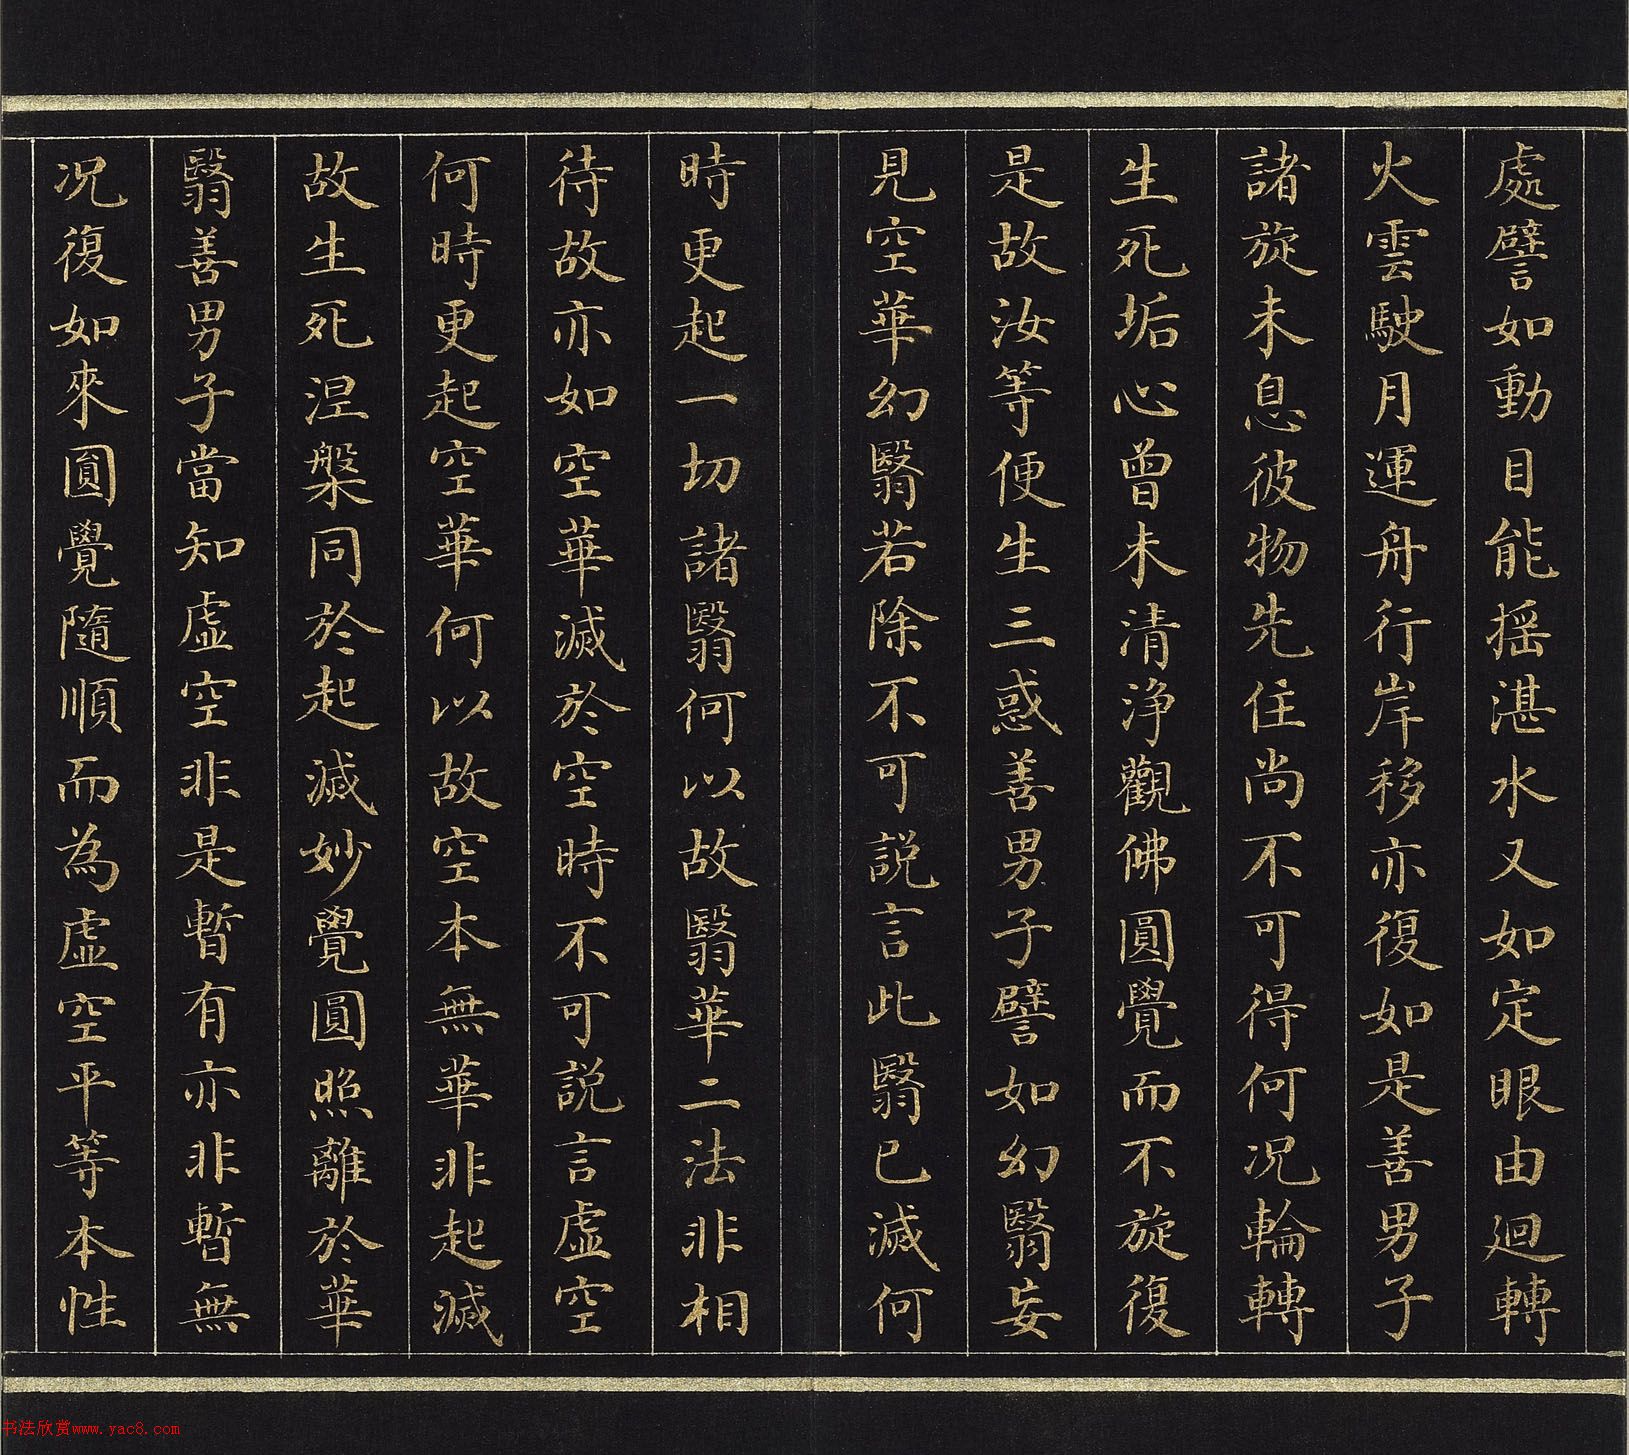 處譬如動目能搖湛水又如定眼由迴轉
火雲駛月運舟行岸移亦復如是善男子
諸旋未息彼物先住尚不可得何况輪轉
生死垢心曾未清淨觀佛圓覺而不旋復
是故汝等便生三惑善男子譬如幻翳妄
見空華幻翳若除不可説言此翳已滅何
時更起一切諸翳何以故翳華二法非相
待故亦如空華滅於空時不可説言虛空
何時更起空華何以故空本無華非起滅
故生死涅槃同於起滅妙覺圓照離於華
翳善男子當知虛空非是暫有亦非暫無
况復如來圓覺隨順而為虛空平等本性
书法欣赏www.yac8.com